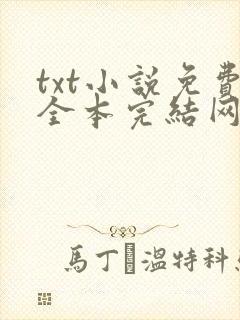 txt小說免費
全本完結网
馬丁·溫特科